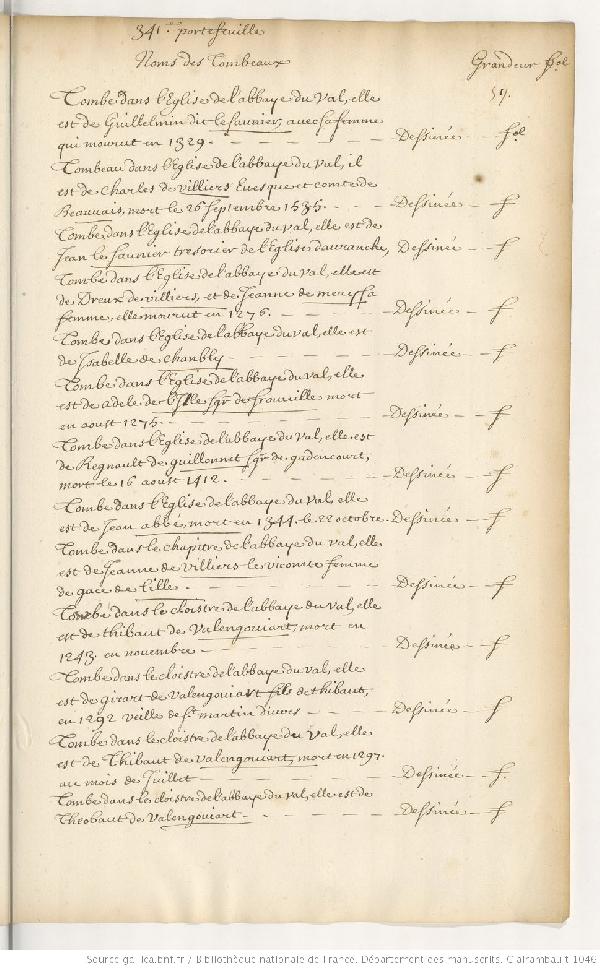 341.e portefeuille
Noms des Tombeaux Grandeur fol
59.
Tombe dans l'Eglise de l'abbaye du Val, elle
est de Guillelmin dit le saunier, avec sa femme
qui mourut en 1329. - - - - Dessinée - fol
Tombeau dans l'Eglise de l'abbaye du Val, il
est de Charles de Villiers Evesque et comte de
Beauvais, mort le 26 Septembre 1535. - - - Dessinée - f
Tombe dans l'Eglise de l'abbaye du Val, elle est de
Jean le saunier tresorier de l'Eglise d'avranche, Dessinée - f
Tombe dans l'Eglise de l'abbaye du Val, elle est
de Dreux de villiers, et de Jeanne de mery sa
femme, elle mourut en 1276. - - - - Dessinée - f
Tombe dans l'Eglise de l'abbaye du val, elle est
de Isabelle de Chambly - - - - Dessinée - f
Tombe dans l'Eglise de l'abbaye du val, elle
est de adele de l'Isle sgr de frouville mort
en aoust 1275. - - - - Dessinée - f
Tombe dans l'Eglise de l'abbaye du Val, elle est
de Regnault de guillonnet sgr de gadencourt,
mort le 16 aoust 1412. - - - - Dessinée - f
Tombe dans l'Eglise de l'abbaye du Val, elle
est de Jean abbé, mort en 1344. le 22 octobre. Dessinée - f
Tombe dans le chapitre de l'abbaye du Val, elle
est de Jeanne de Villiers le vicomte femme
de gace de Lille. - - - - Dessinée - f
Tombe dans le cloistre de l'abbaye du val, elle
est de thibaut de Valengouiart, mort en
1243. en novembre - - - - Dessinée - f
Tombe dans le cloistre de l'abbaye du val, elle
est de girart de Valengouiart fils de thibaut,
en 1292 veille de St martin d'ivers - - Dessinée - f
Tombe dans le cloistre de l'abbaye du Val, elle
est de Thibaut de Valengouiart, mort en 1297.
au mois de Juillet - - - - Dessinée - f.
Tombe dans le cloistre de l'abbaye du Val, elle est de
Theobaut de Valengouiart - - - - Dessinée - f
Source gallica.bnf.fr / Bibliothèque nationale de France. Département des manuscrits. Clairambault 1046